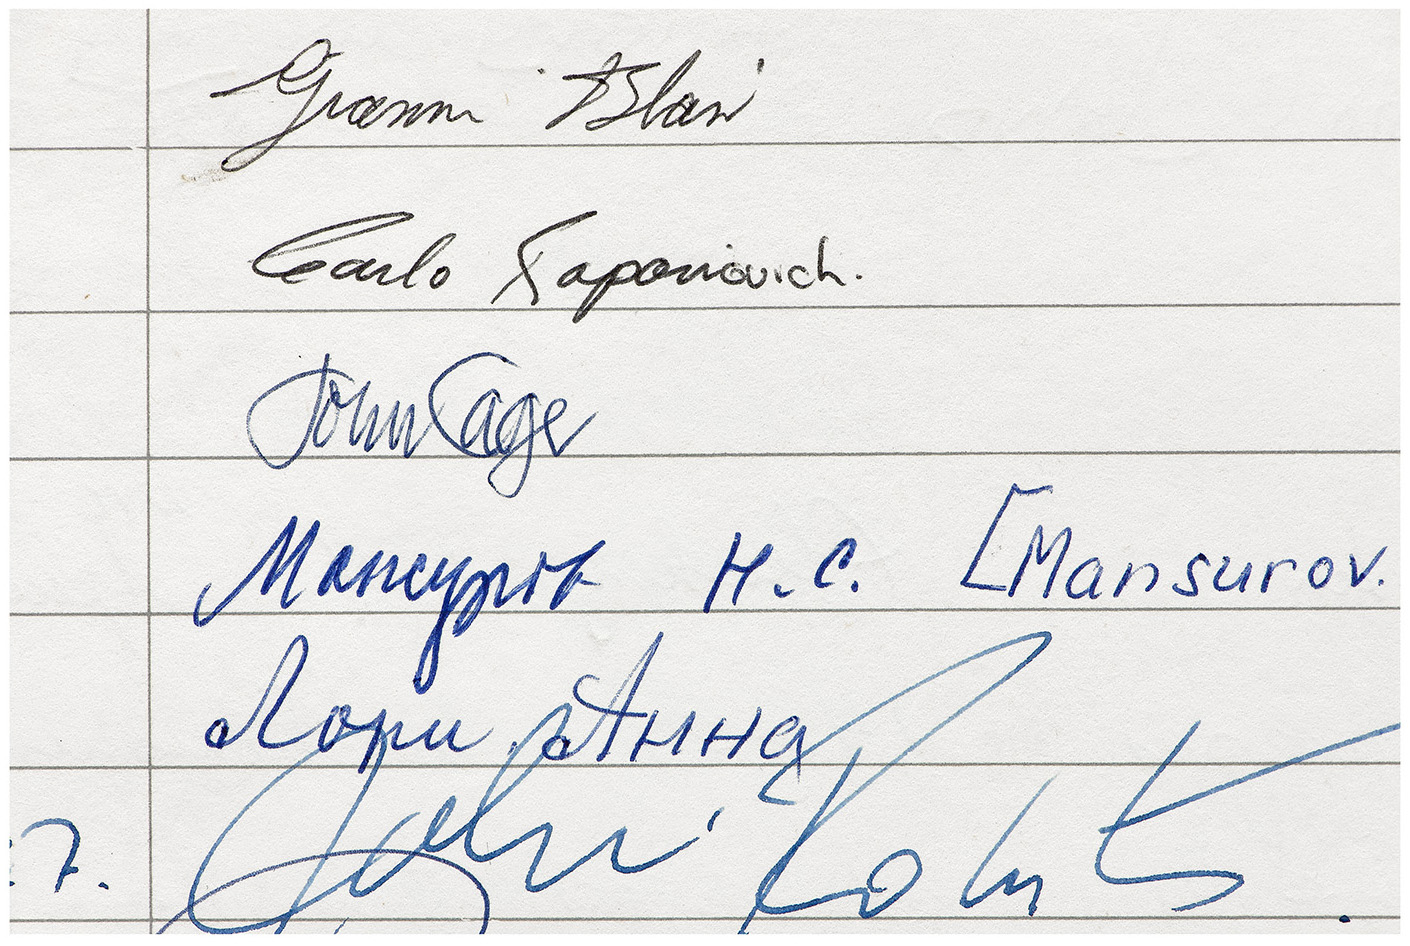 Gianni Blasi
Carlo Taponiovich.
John Cage
Мансуров Н.С. [Mansurov.
Лори Анна
7.